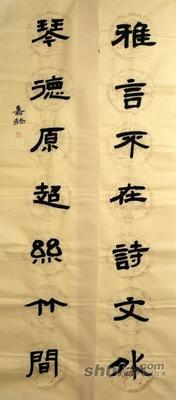 雅言不在詩文外
琴德原超絲竹間